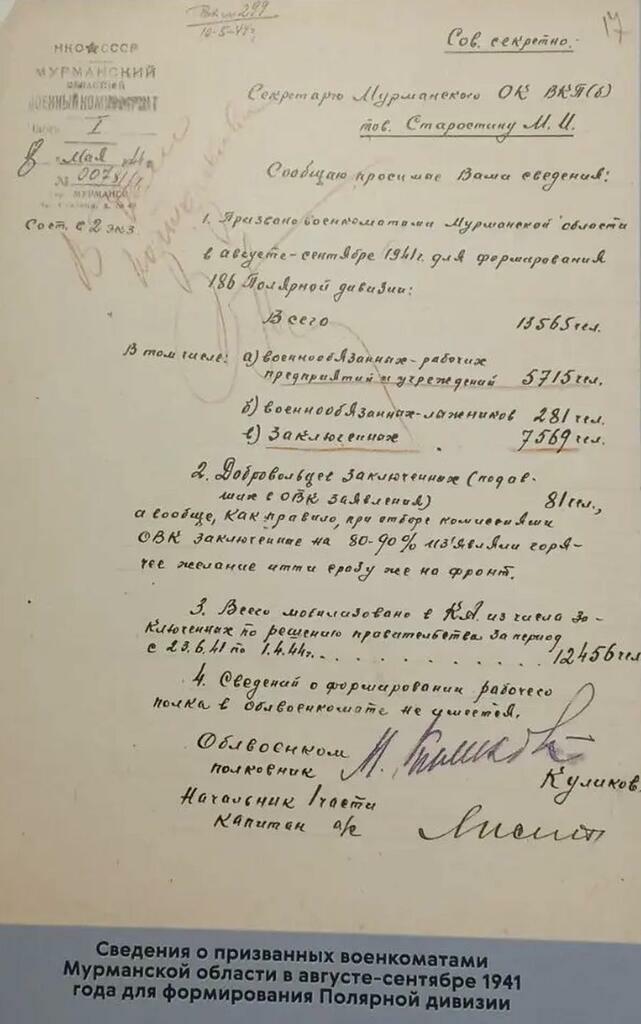 299
10-5-44г.
17
Сов. секретно.
НКО★СССР
МУРМАНСКИЙ
ОБЛАСТНОЙ
ВОЕННЫЙ КОМИССАРИАТ
Часть I
8 мая
№ 0078
г. МУРМАНСК
Сост. в 2 экз.
Секретарю Мурманского ОК ВКП(б)
тов. Старостину М. И.
Сообщаю просимые Вами сведения:
1. Призвано военкоматами Мурманской области
в августе-сентябре 1941г. для формирования
186 Полярной дивизии:
Всего 13565 чел.
В том числе: а) военнообязанных-рабочих
предприятий и учреждений 5715 чел.
б) военнообязанных-лыжников 281 чел.
в) Заключенных 7569 чел.
2. Добровольцев заключенных (подав-
ших в ОВК заявления) 81 чел.,
а вообще, как правило, при отборе комиссиями
ОВК заключенные на 80-90% из'являли горя-
чее желание итти сразу же на фронт.
3. Всего мобилизовано в КА из числа за-
ключенных по решению правительства за период
с 23.6.41 по 1.4.44г. . . . . . . . . . . 12456 чел
4. Сведений о формировании рабочего
полка в Облвоенкомате не имеется.
Облвоенком
полковник Куликов.
Начальник 1 части
капитан а/с
Сведения о призванных военкоматами
Мурманской области в августе-сентябре 1941
года для формирования Полярной дивизии